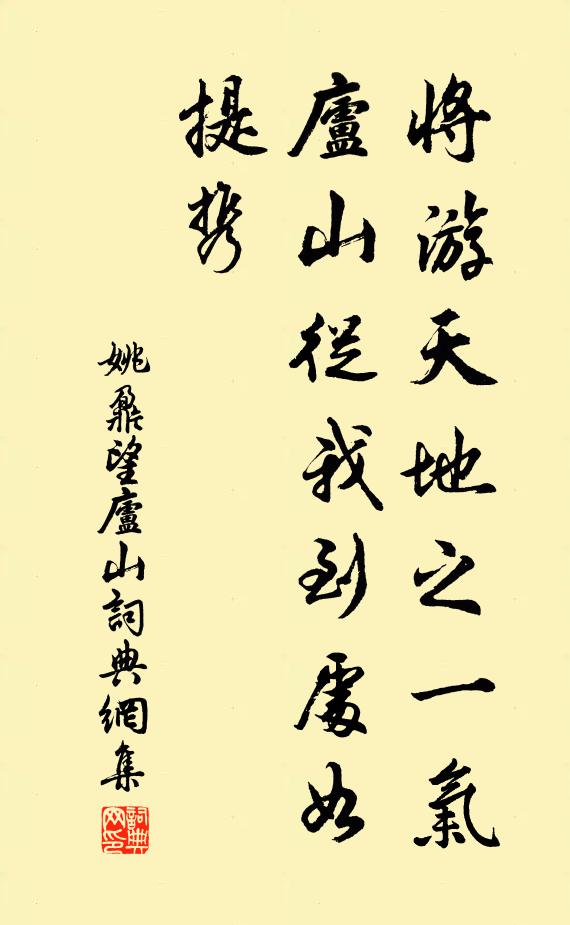 將游天地之一氣
廬山從我到處如
提携
姚鼐望廬山詞典網集
詞典
网印